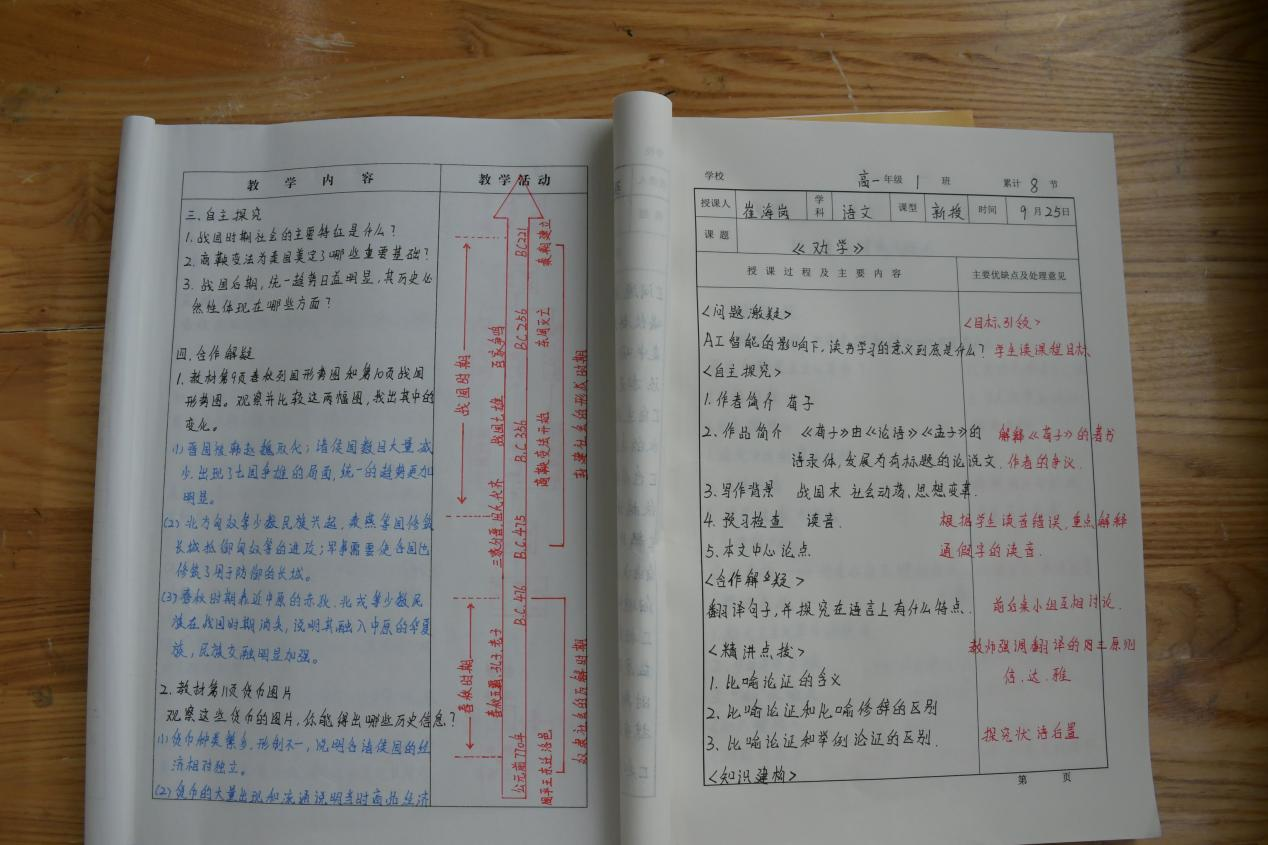 教 学 内 容
教 学 活 动
三、自主探究
1. 战国时期社会的主要特征是什么？
2. 商鞅变法为秦国奠定了哪些重要基础？
3. 战国后期，统一趋势日益明显，其历史必
然性体现在哪些方面？
四、合作解疑
1. 教材第9页春秋列国形势图和第10页战国
形势图。观察并比较这两幅图，找出其中的
变化。
(1) 晋国被韩赵魏取代；诸侯国数目大量减
少，出现了七国争雄的局面，统一的趋势更加
明显。
(2) 北方匈奴等少数民族兴起，秦燕等国修筑
长城抵御匈奴等的进攻；军事需要使各国也
修筑了用于防御的长城。
(3) 春秋时期靠近中原的赤狄、北戎等少数民
族在战国时期消失，说明其融入中原的华夏
族，民族交融明显加强。
2. 教材第11页货币图片
观察这些货币的图片，你能得出哪些历史信息？
(1) 货币种类繁多，形制不一，说明各诸侯国的经
济相对独立。
(2) 货币的大量出现和流通说明当时商品经济
战国时期
百家争鸣
战国七雄
三家分晋，田氏代齐
春秋时期
春秋五霸，孔子，老子
BC221
B.C.256
B.C.356
B.C.475
B.C.476
公元前770年
秦朝建立
东周灭亡
商鞅变法开始
周平王东迁洛邑
封建社会的形成时期
奴隶社会的瓦解时期
学校 高一年级 1 班 累计 8 节
授课人 崔海岗 学科 语文 课型 新授 时间 9月25日
课题 《劝学》
授 课 过 程 及 主 要 内 容 主要优缺点及处理意见
<问题激疑>
<目标引领>
AI智能的影响下，读书学习的意义到底是什么？ 学生读课程目标
<自主探究>
1. 作者简介 荀子
2. 作品简介 《荀子》由《论语》《孟子》的 解释《荀子》的著书
语录体，发展为有标题的论说文. 作者的争议.
3. 写作背景 战国末 社会动荡，思想变革.
4. 预习检查 读音. 根据学生读音错误，重点解释
5. 本文中心论点 通假字的读音.
<合作解疑>
翻译句子，并探究在语言上有什么特点. 前后桌小组互相讨论.
<精讲点拨> 教师强调翻译的三原则
1. 比喻论证的含义 信、达、雅
2. 比喻论证和比喻修辞的区别
3. 比喻论证和举例论证的区别. 探究状语后置
<知识建构>
第 页